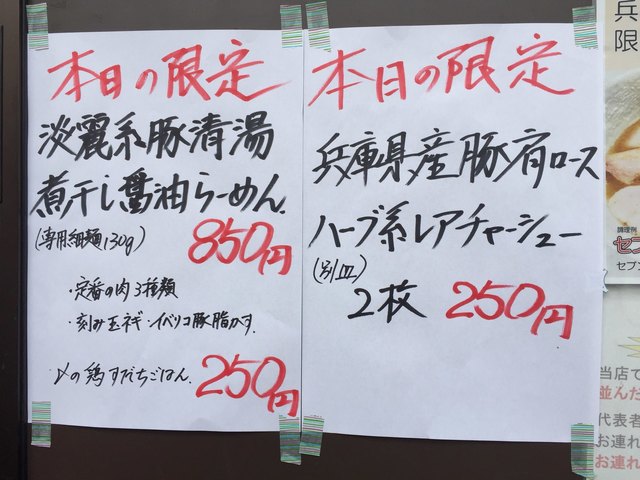 本日の限定
淡麗系豚清湯
煮干し醤油らーめん.
(専用細麺130g)
850円
・定番の肉3種類
・刻み玉ネギ・イベリコ豚脂かす.
〆の鶏すだちごはん.
250円
本日の限定
兵庫県産豚肩ロース
ハーブ系レアチャーシュー
(別皿)
2枚 250円
兵
限
調理例
セブ
セブン
当店で
並んだ
代表者
お連れ
お連れ